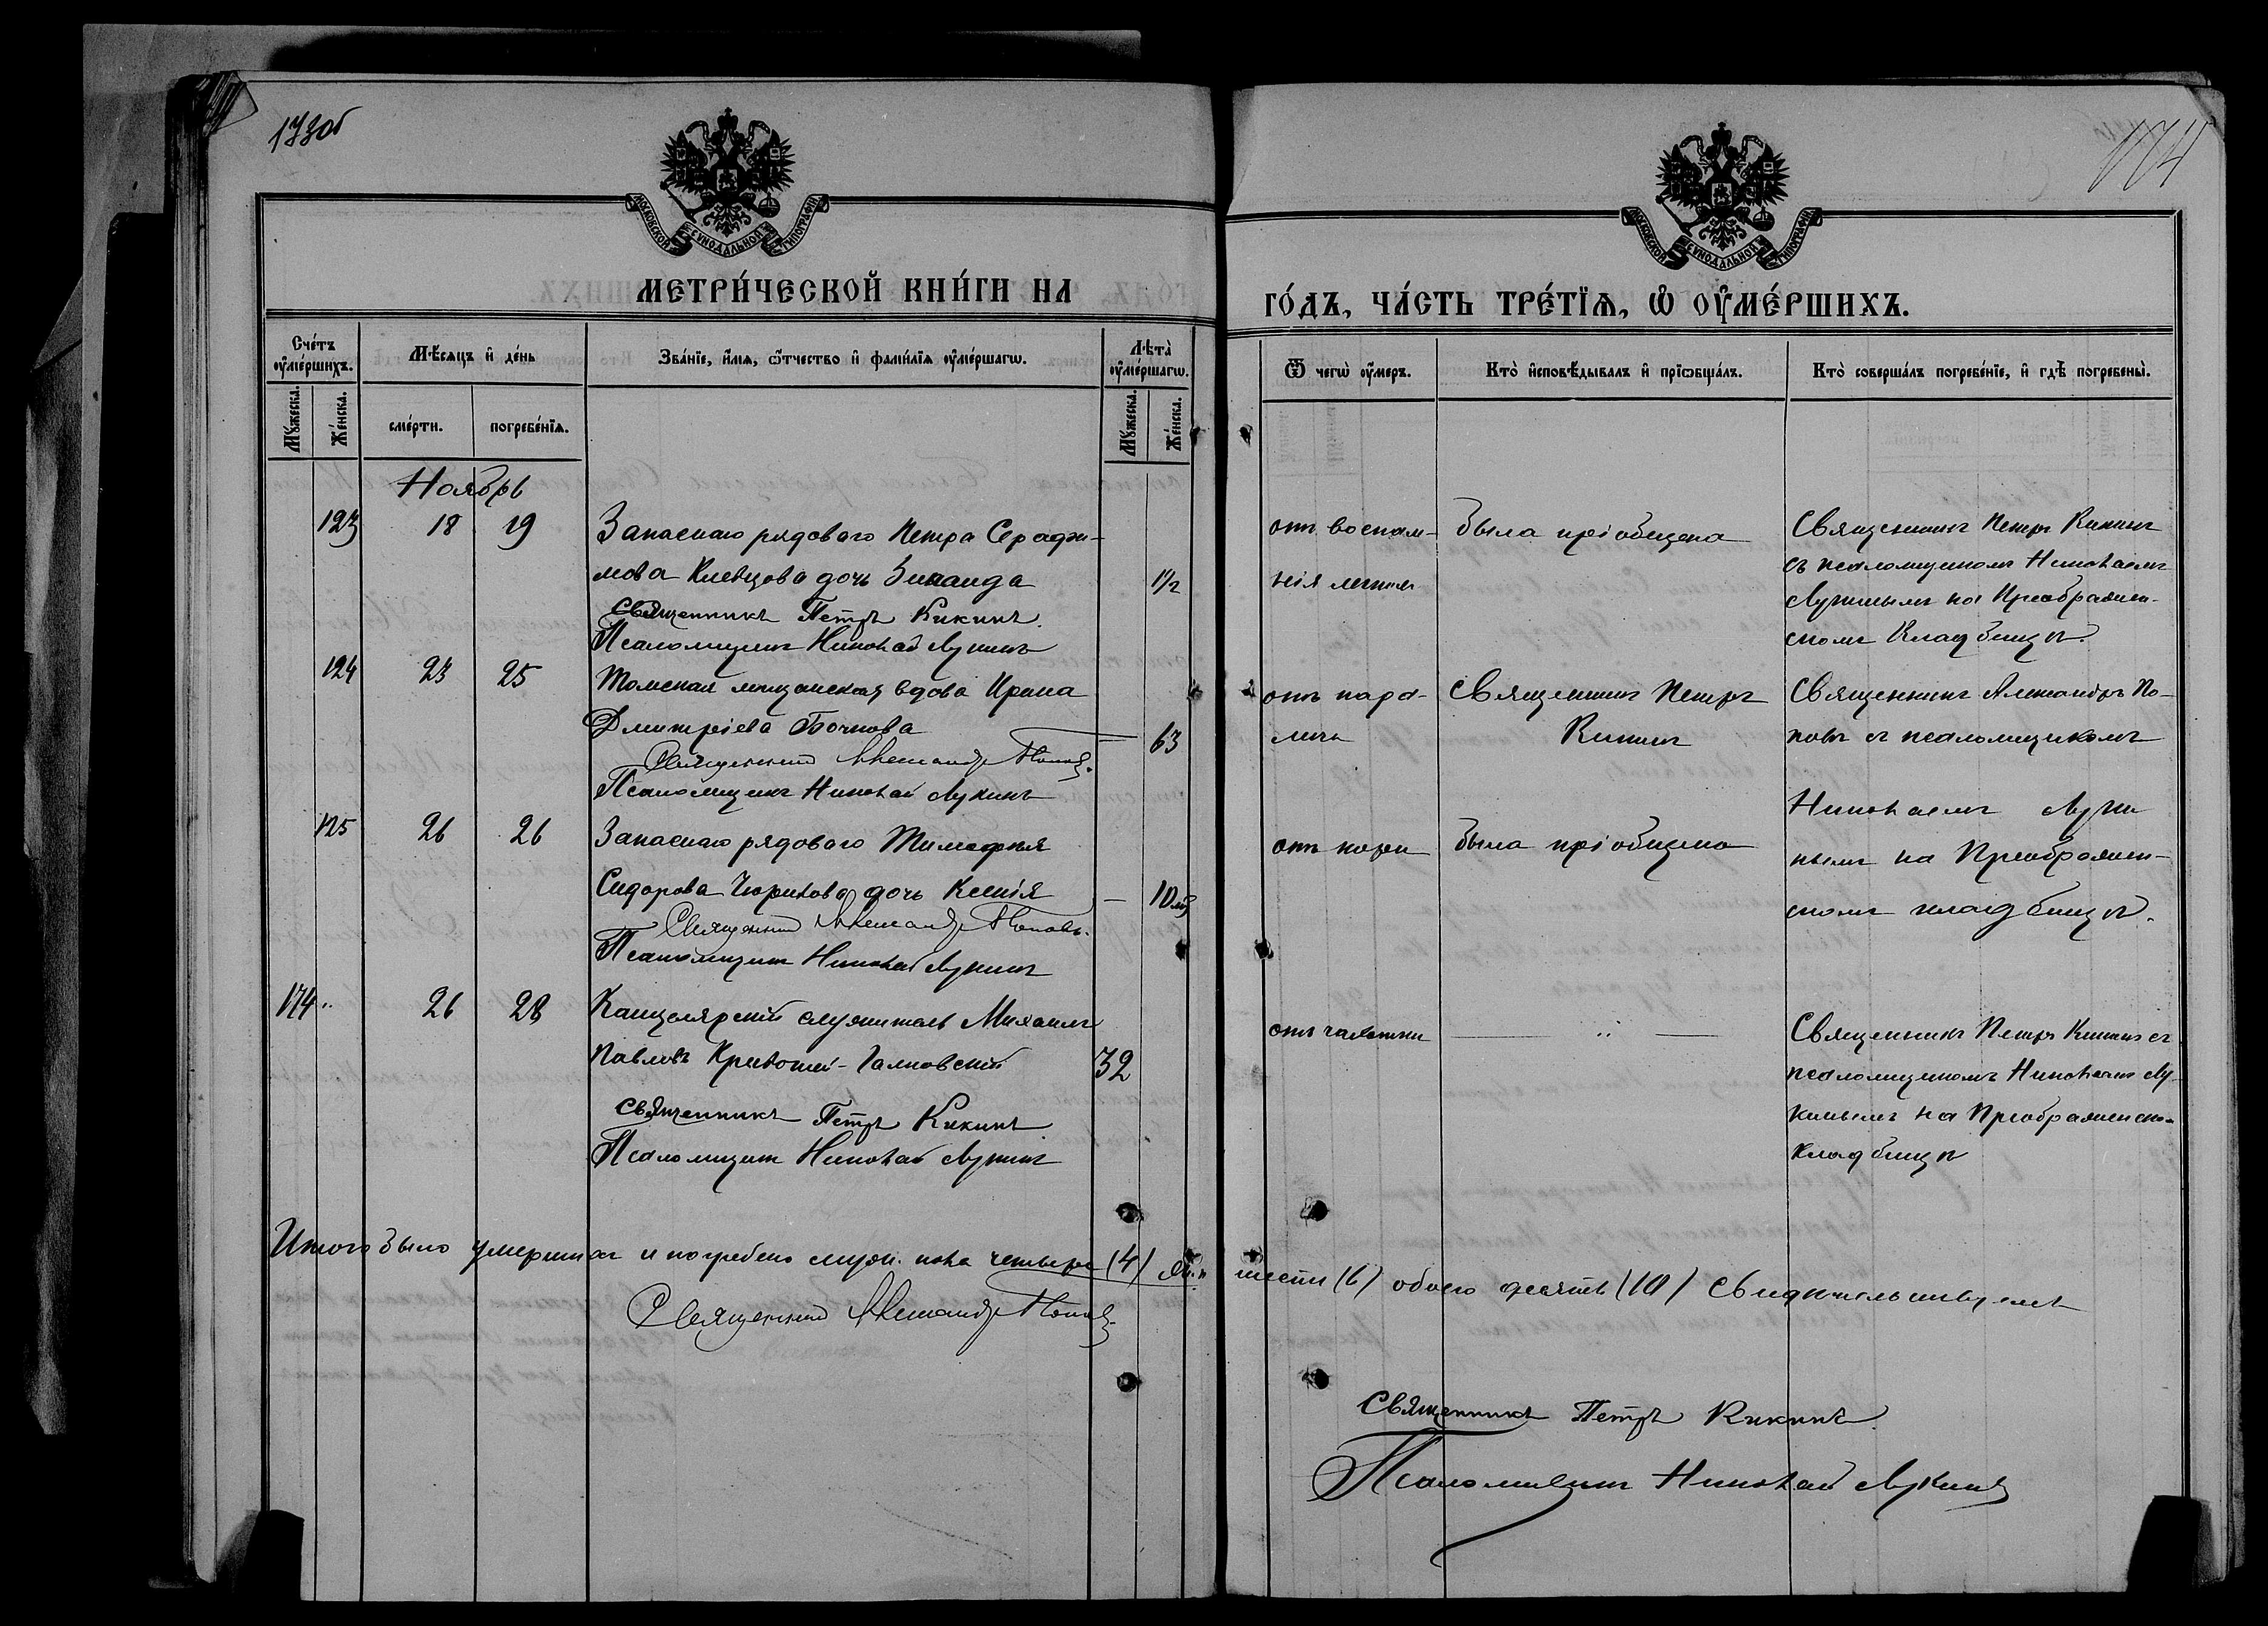 173об
174
МОСКОВСКОЙ СѴНОДАЛЬНОЙ ТИПОГРАФІИ
МОСКОВСКОЙ СѴНОДАЛЬНОЙ ТИПОГРАФІИ
МЕТРИ́ЧЕСКОЙ КНИ́ГИ НА
ГО́ДЪ, ЧА́СТЬ ТРЕ́ТЇѦ, Ѡ҆ ОУ҆МЕ́РШИХЪ.
Сче́тъ оу҆ме́ршихъ.
Мѣ́сяцъ и҆ де́нь
Зва́нїе, и҆́мѧ, ѻ҆́тчество и҆ фами́лїѧ оу҆ме́ршагѡ.
Лѣ́та оу҆ме́ршагѡ.
Ѿ чегѡ̀ оу҆́меръ.
Кто̀ и҆сповѣ́дывалъ и҆ прїѡбща́лъ.
Кто̀ соверша́лъ погребе́нїе, и҆ гдѣ̀ погребены̀.
Мꙋ́жеска.
Же́нска.
сме́рти.
погребе́нїѧ.
Мꙋ́жеска.
Же́нска.
Ноябрь
123 18 19 Запаснаго рядоваго Петра Серафи-
мова Клевцова дочь Зинаида 1½
Священникъ Петръ Кикинъ.
Псаломщикъ Николай Лукинъ
отъ воспале-
нія легкихъ
была пріобщена
Священникъ Петръ Кикинъ
съ псаломщикомъ Николаемъ
Лукинымъ на Преображен-
скомъ Кладбищѣ.
124 23 25 Томская мѣщанская вдова Ирина
Дмитріева Бочкова 63
Священникъ Александръ Поповъ.
Псаломщикъ Николай Лукинъ
отъ пара-
лича
Священникъ Петръ
Кикинъ
Священникъ Александръ По-
повъ съ псаломщикомъ
Николаемъ Луки
нымъ на Преображен-
скомъ кладбищѣ.
125 26 26 Запаснаго рядоваго Тимофея
Сидорова Чюрикова дочь Ксенія — 10 мѣ
Священникъ Александръ Поповъ.
Псаломщикъ Николай Лукинъ
отъ кори
была пріобщена
174 " 26 28 Канцелярскій служитель Михаилъ
Павловъ Кривошей-Галковскій 32
Священникъ Петръ Кикинъ
Псаломщикъ Николай Лукинъ
отъ чахотки
— " —
Священникъ Петръ Кикинъ съ
псаломщикомъ Николаемъ Лу-
кинымъ на Преображенско-
кладбищѣ
Итого было умершихъ и погребено муж. пола четыре (4) жен. шести (6) обоего десять (10) свидѣтельствуемъ
Священникъ Александръ Поповъ.
Священникъ Петръ Кикинъ.
Псаломщикъ Николай Лукинъ